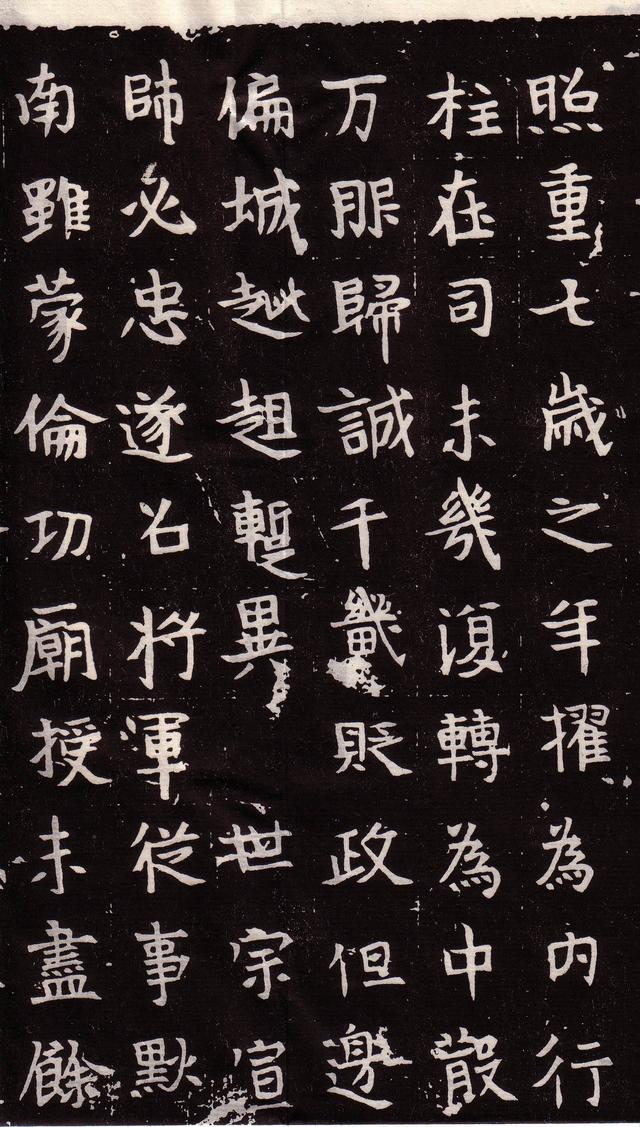 照重七歲之年擢為内行
柱在司未幾復轉為中散
万服歸誠千畿貶政但邊
偏城趑趄暫異 世宗宣
師必忠遂召將軍從事默
南雖蒙倫功廟授未盡餘